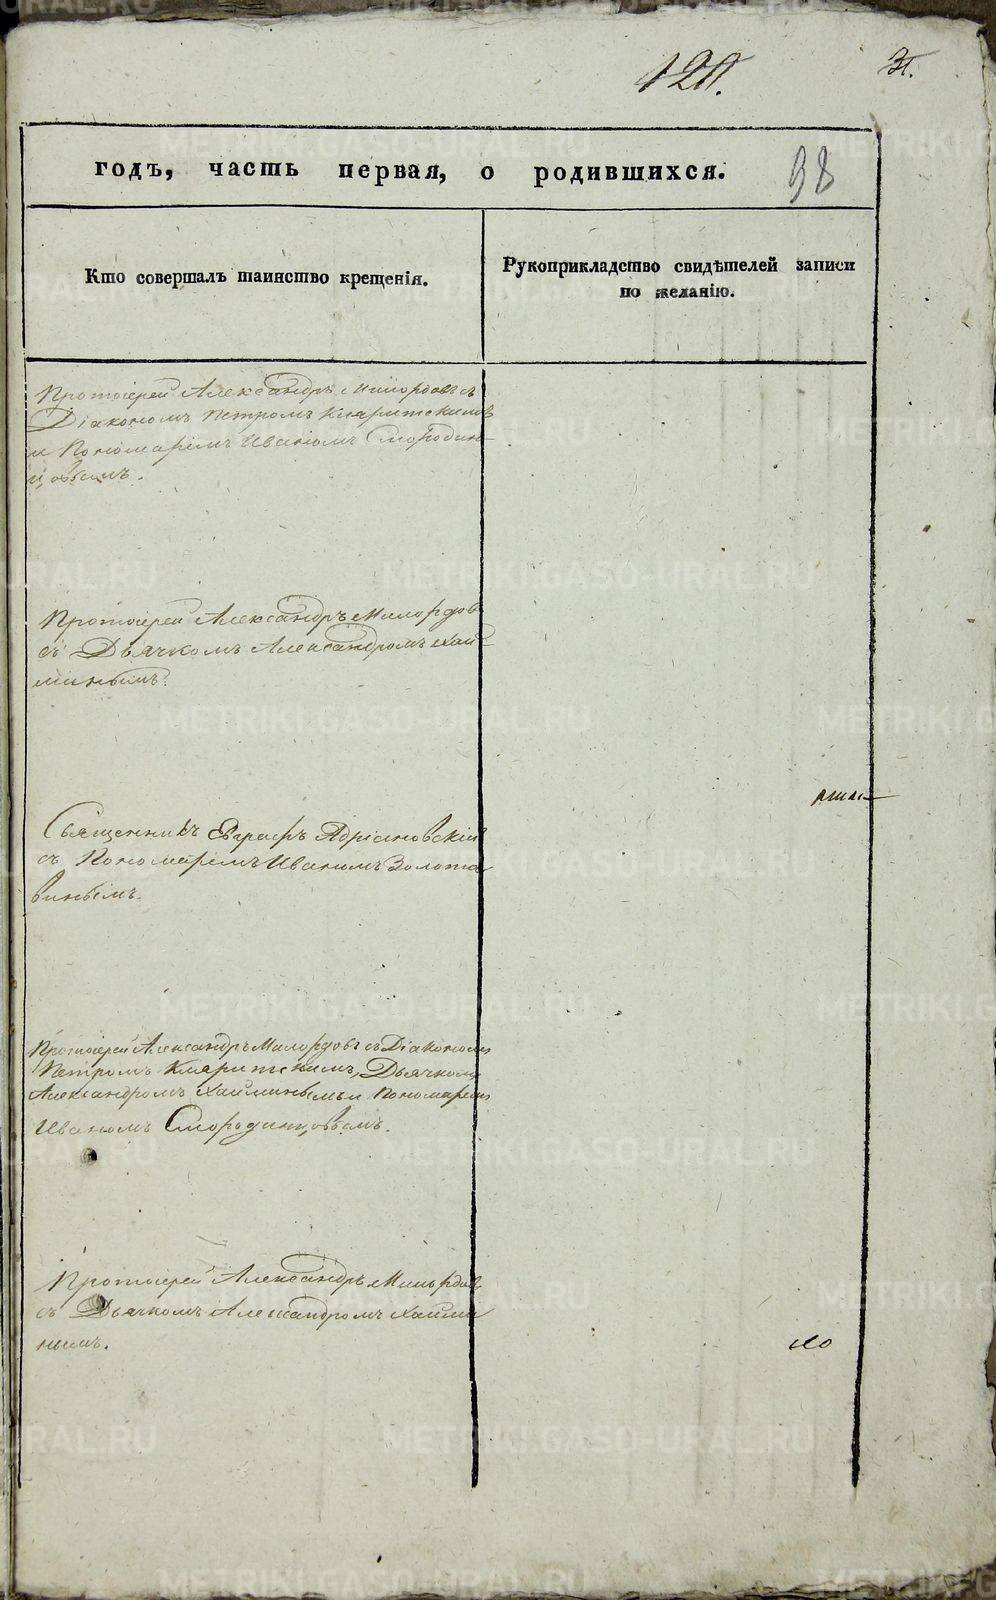 120.
31.
годъ, часть первая, о родившихся.
98
Кто совершалъ таинство крещенія.
Рукоприкладство свидѣтелей записи
по желанію.
Протоіерей Александръ Милордовъ съ
Діакономъ Петромъ Кляритскимъ
и Пономаремъ Иваномъ Смородин-
цовымъ.
Протоіерей Александръ Милордовъ
съ Дьячкомъ Александромъ Хай-
минымъ.
Священникъ Евграфъ Адріановскій
съ Пономаремъ Иваномъ Золота
винымъ.
Протоіерей Александръ Милордовъ съ Діакономъ
Петромъ Кляритскимъ, Дьячкомъ
Александромъ Хайминымъ и Пономаремъ
Иваномъ Смородинцовымъ.
Протоіерей Александръ Милордовъ
съ Дьячкомъ Александромъ Хайми
нымъ.
ло
METRIKI.GASO-URAL.RU